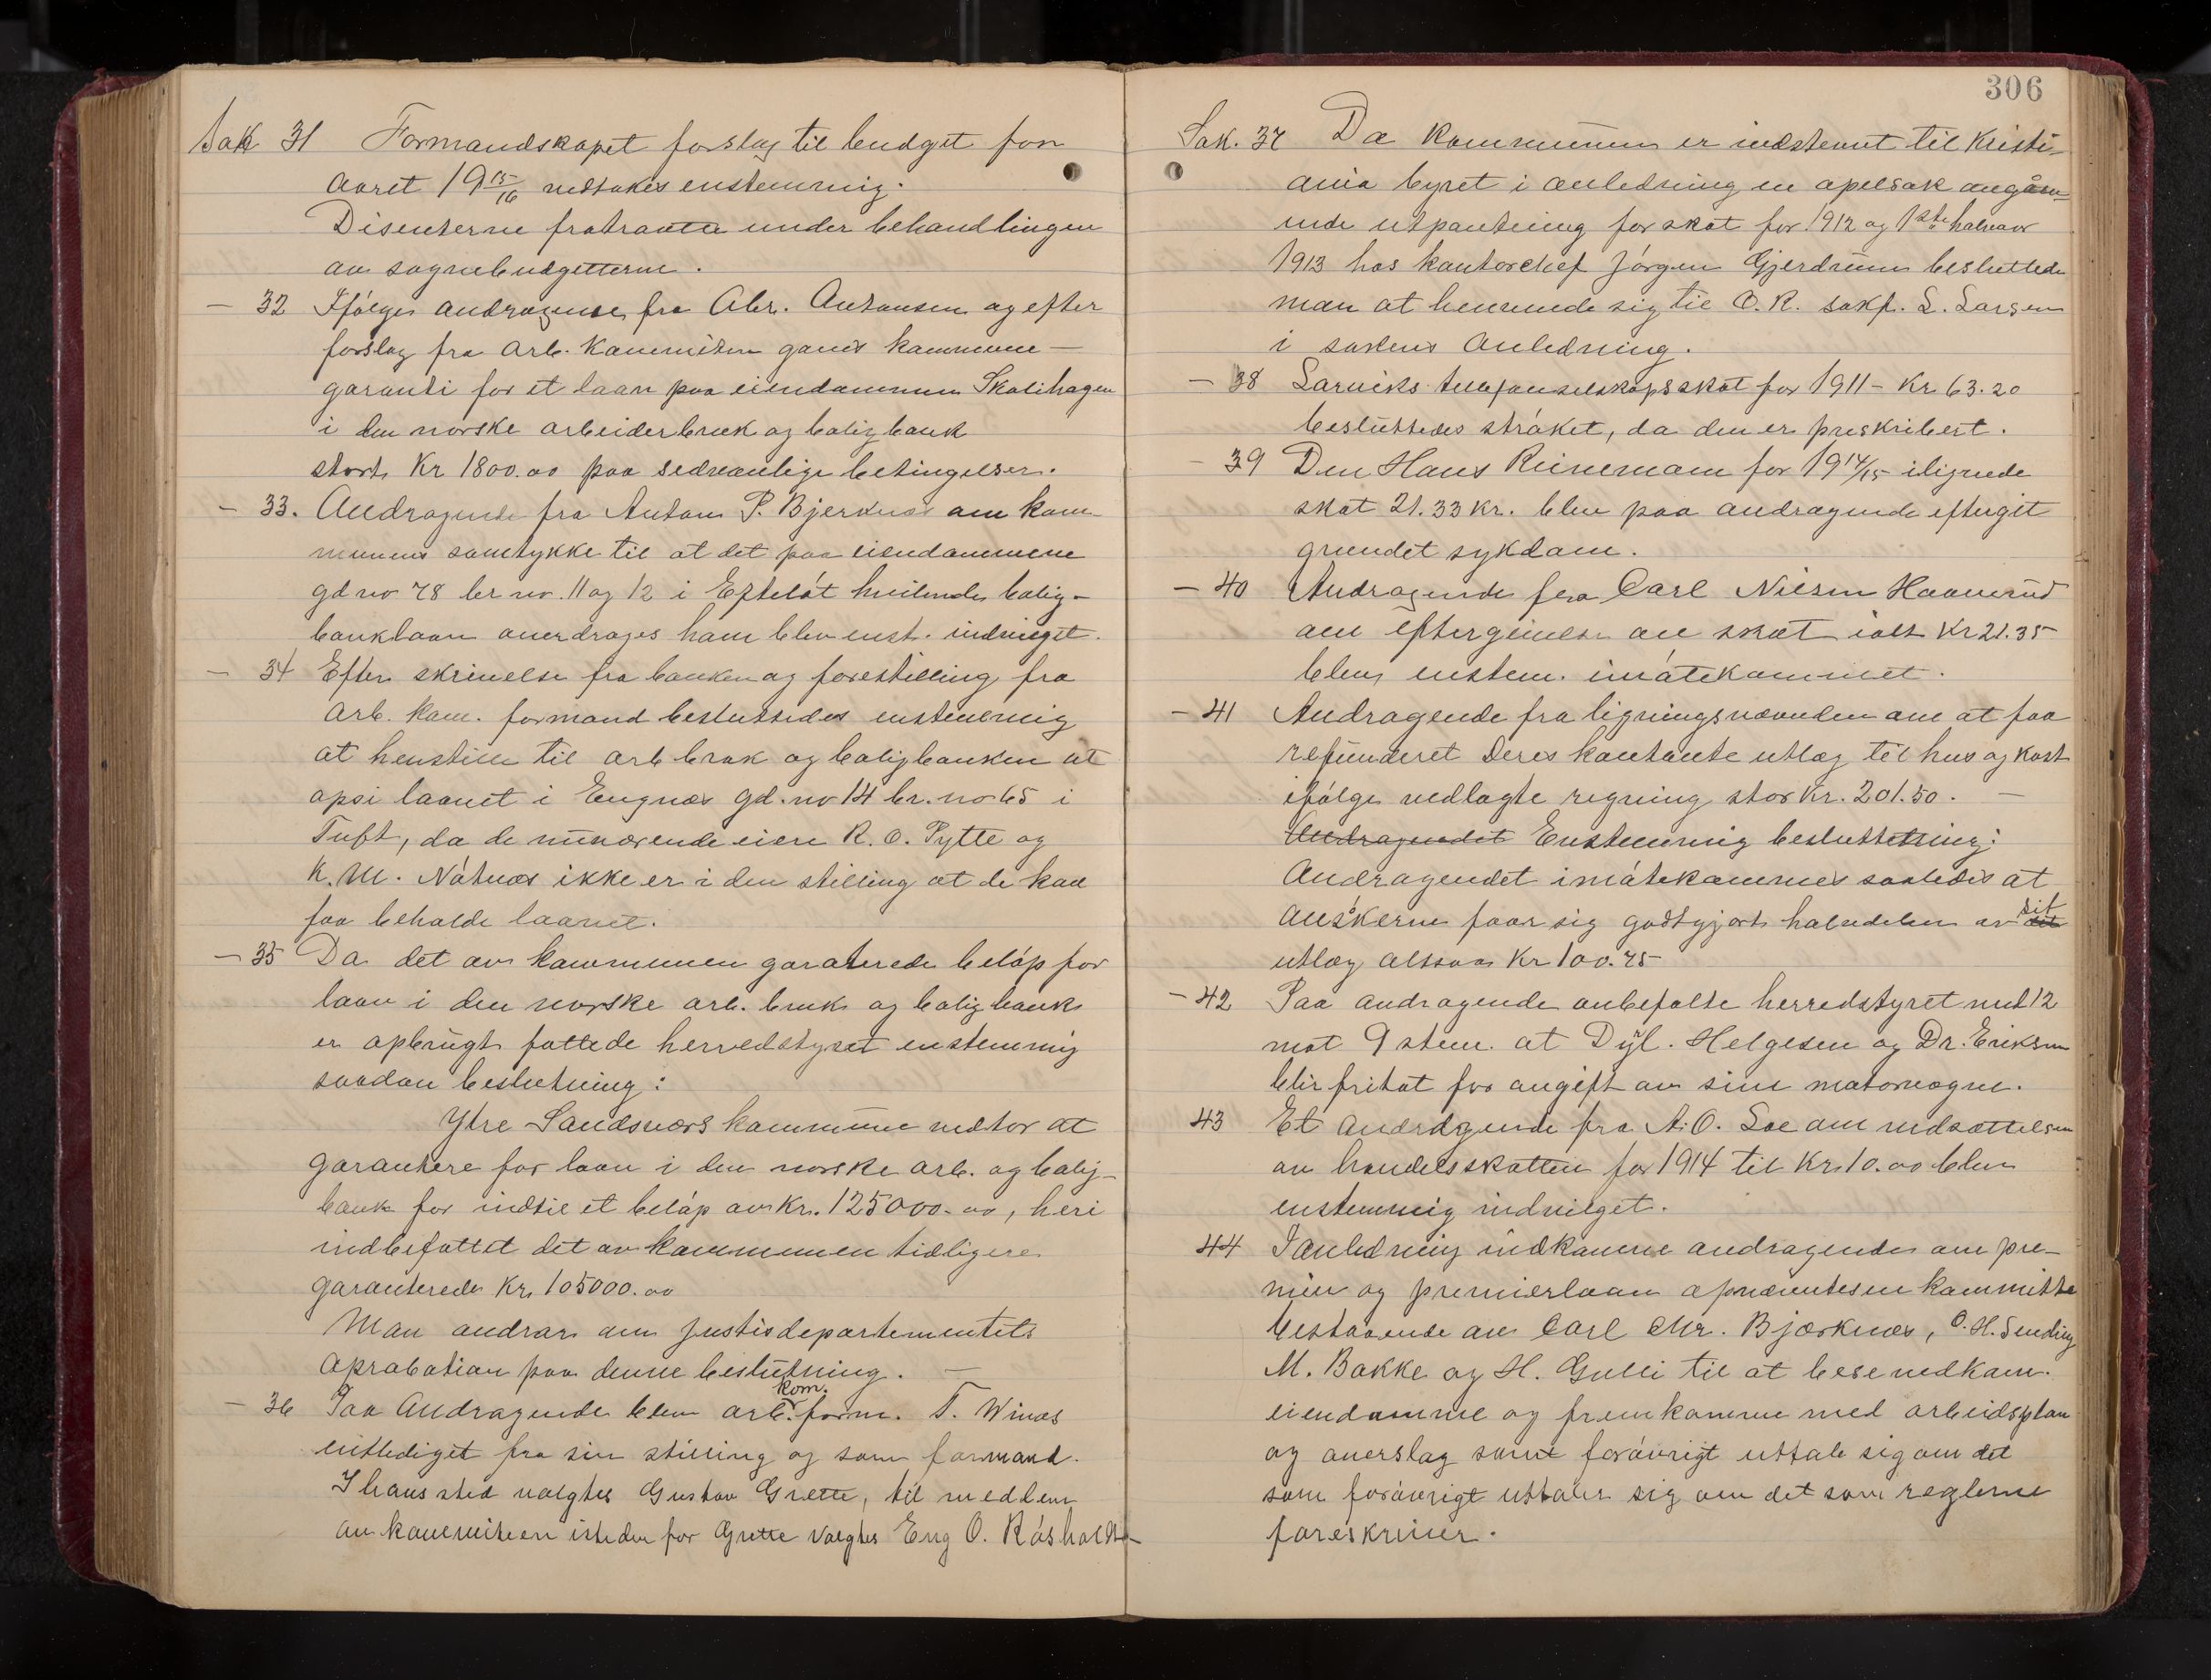 Sak 31 Formandskapet forslag til budget for
aaret 19 15/16 vedtokes enstemmig.
Disenterne fratraatte under behandlingen
av sognebudgetterne.
— 32 Ifølge andragende fra Abr. Antonsen og efter
forslag fra arb. kommiteen gaves kommune-
garanti for et laan paa eiendommen Skolihagen
i den norske arbeiderbruk og boligbank
stort Kr 1800.00 paa sedvanlige betingelser.
— 33. Andragende fra Anton P. Bjerknes om kom-
munens samtykke til at det paa eiendommene
gd no 78 br no. 11 og 12 i Efteløt hvilende bolig-
banklaan overdrages ham blev enst. indvilget.
— 34 Efter skrivelse fra banken og forestilling fra
arb. kom. formand besluttedes enstemmig
at henstille til arb bruk og boligbanken at
opsi laanet i Engnes gd. no 14 br. no 65 i
Tuft, da de nuværende eiere R. O. Pytte og
K. M. Nátnæs ikke er i den stilling at de kan
faa beholde laanet.
— 35 Da det av kommunen garaterede beløp for
laan i den norske arb. bruk og boligbank
er opbrugt fattede herredstyret enstemmig
saadan beslutning:
Ytre Sandsværs kommune vedtar at
garantere for laan i den norske arb. og bolig-
bank for indtil et beløp av Kr. 125000.00, heri
indbefattet det av kommunen tidligere
garanterede Kr. 105000.00
Man andrar om Justisdepartementets
aprobation paa denne beslutning. —
— 36 Paa Andragende blev arb. kom. form. T. Winæs
entlediget fra sin stilling og som formand.
I hans sted valgtes Gustav Grette, til medlem
av kommiteen isteden for Grette valgtes Eng O. Røsholdt
306
Sak. 37 Da kommunen er indstevnt til Kristi-
ania byret i anledning en apelsak angåen-
ende utpantning for skat for 1912 og 1ste halvaar
1913 hos kontorchef Jørgen Gjerdrum besluttede
man at henvende sig til O. R. sakf. L. Larsen
i sakens anledning.
— 38 Larviks telefonselskaps skat for 1911 - Kr 63.20
besluttedes strøket, da den er preskribert.
— 39 Den Hans Reinemann for 19 14/15 ilignede
skat 21.33 kr. blev paa andragende eftergit
grundet sykdom.
— 40 Andragende fra Carl Nilsen Haaverud
om eftergivelse av skat ialt Kr 21.35
blev enstem. imøtekommet.
— 41 Andragende fra ligningsnævnden om at faa
refunderet Deres kontante utlæg til hus og kost
ifølge vedlagte regning stor Kr. 201.50. —
Andragendet Enstemmig besluttetning:
Andragendet imøtekommes saaledes at
ansøkerne faar sig godtgjort halvdelen av sit
utlæg altsaa Kr 100.75
— 42 Paa andragende anbefalte herredstyret med 12
mot 9 stem. at Dyl. Helgesen og Dr. Eriksen
blir fritat for avgift av sine motorvogne.
43 Et andragende fra A. O. Loe om nedsættelsen
av handelsskatten for 1914 til Kr. 10.00 blev
enstemmig indvilget.
44 I anledning indkomne andragender om pre-
mier og premierlaan opnævntes en kommitte
bestaaende av Carl Chr. Bjørknes, O. H. Sending
M. Bakke og H. Gulli til at bese vedkom.
eiendomme og fremkomme med arbeidsplan
og overslag samt forøvrigt uttale sig om det
som forøvrigt uttaler sig om det som reglerne
foreskriver.